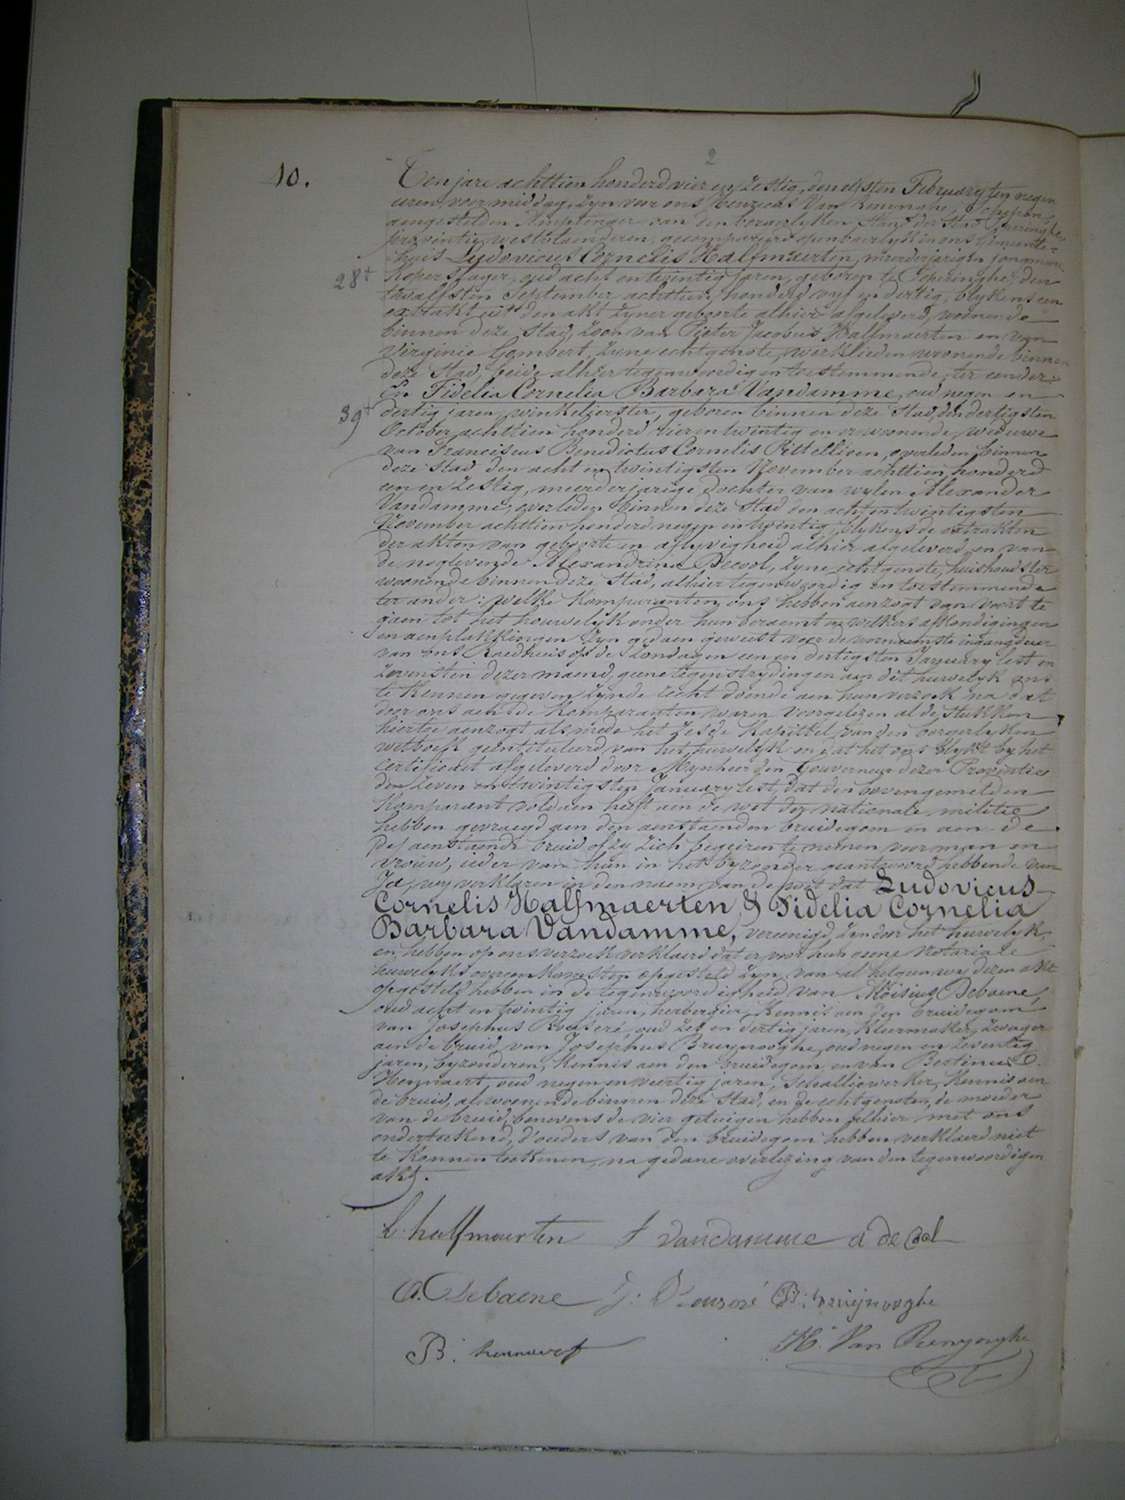 2
10.
Ten jare achttien honderd vier en zestig, den elfsten February ten negen
uren voor middag, zyn voor ons
aangestelden Ambtenaer van den burgerlyken Stand der Stad Poperinghe,
provintie westvlaenderen, gecompareerd openbaerlyk in ons Gemeente-
huis Ludovicus Cornelis Halfmaerten, meerderjarigen jongman,
28t koperslager, oud acht en twintig jaren, geboren te Poperinghe, den
twaelfsten September achttien honderd vyf en dertig, blykens een
extrakt uit den akt zyner geboorte alhier afgeleverd, woonende
binnen deze Stad, zoon van Pieter Jacobus Halfmaerten en van
Virginie Gombert, zyne echtgenote, werklieden woonende binnen
deze Stad, beide alhier tegenwoordig en toestemmende, ter eender:
En Fidelia Cornelia Barbara Vandamme, oud negen en
39t dertig jaren, winkelierster, geboren binnen deze Stad, den dertigsten
October achttien honderd vier en twintig en er woonende, weduwe
van Franciscus Benedictus Cornelis Pittellioen, overleden binnen
deze stad den acht en twintigsten November achttien honderd
een en zestig, meerderjarige dochter van wylen Alexander
Vandamme, overleden binnen deze Stad den acht en twintigsten
November achttien honderd negen en twintig, blykens de extrakten
der akten van geboorte en aflyvigheid alhier afgeleverd, en van
de naglevende Alexandrina Decool, zyne echtgenote, huishoudster
woonende binnen deze Stad, alhier tegenwoordig en toestemmende
ter ander: welke komparanten ons hebben aenzogt van voort te
gaen tot het houwelyk onder hun beraemt en welkers afkondigingen
en aenplakkingen zyn gedaen geweest voor de voornaemste ingangdeur
van ons Raedhuis op de Zondagen een en dertigsten January lest en
zevensten dezer maend, geene tegenstrydingen aan dit huwelyk ons
te kennen gegeven zynde recht doende aen hun verzoek na dat
door ons aen de Komparanten waren voorgelezen al de stukken
hiertoe aenzogt alsmede het zesde kapittel van den borgerlyken
wetboek geintituleerd, van het huwelyk en dat het ons blykt by het
certificaet afgeleverd door Mynheer den Gouverneur dezer Provintie
den zeven en twintigsten January lest, dat den bovengemelden
Komparant voldaen heeft aen de wet der nationale militie
hebben gevraegd aen den aenstaenden bruidegom en aen de
aenstaende bruid of zy zich begeiren te nemen voor man en
vrouw, ieder van hun in het byzonder geantwoord hebbende van
Ja, wy verklaren in den naem van de wet dat Ludovicus
Cornelis Halfmaerten & Fidelia Cornelia
Barbara Vandamme, vereenigd zyn door het huwelyk,
en hebben op ons verzoek verklaerd dat er voor hun geene Notariale
huwelyks overeenkomsten opgesteld zyn, van al hetgeen wy dezen akt
opgesteld hebben in de tegenwoordigheid van Aloisius Debaene,
oud acht en twintig jaren, herbergier, kennis aen den bruidegom
van Josephus oud zes en dertig jaren, kleermaker, zwager
aen de bruid, van Josephus Bruynooghe, oud negen en zeventig
jaren, byzonderen, kennis aen den bruidegom en van
oud negen en veertig jaren, Schaelliewerker, kennis aen
de bruid, al woonende binnen deze Stad, en de echtgenoten, de moeder
van de bruid, benevens de vier getuigen hebben alhier met ons
onderteekend, d'ouders van den bruidegom hebben verklaerd niet
te konnen teekenen, na gedane overlezing van den tegenwoordigen
akt.
L. halfmaerten f vandamme a de Col
A. Debaene J: B: bruijnooghe
B. hennaert H. Van Renynghe